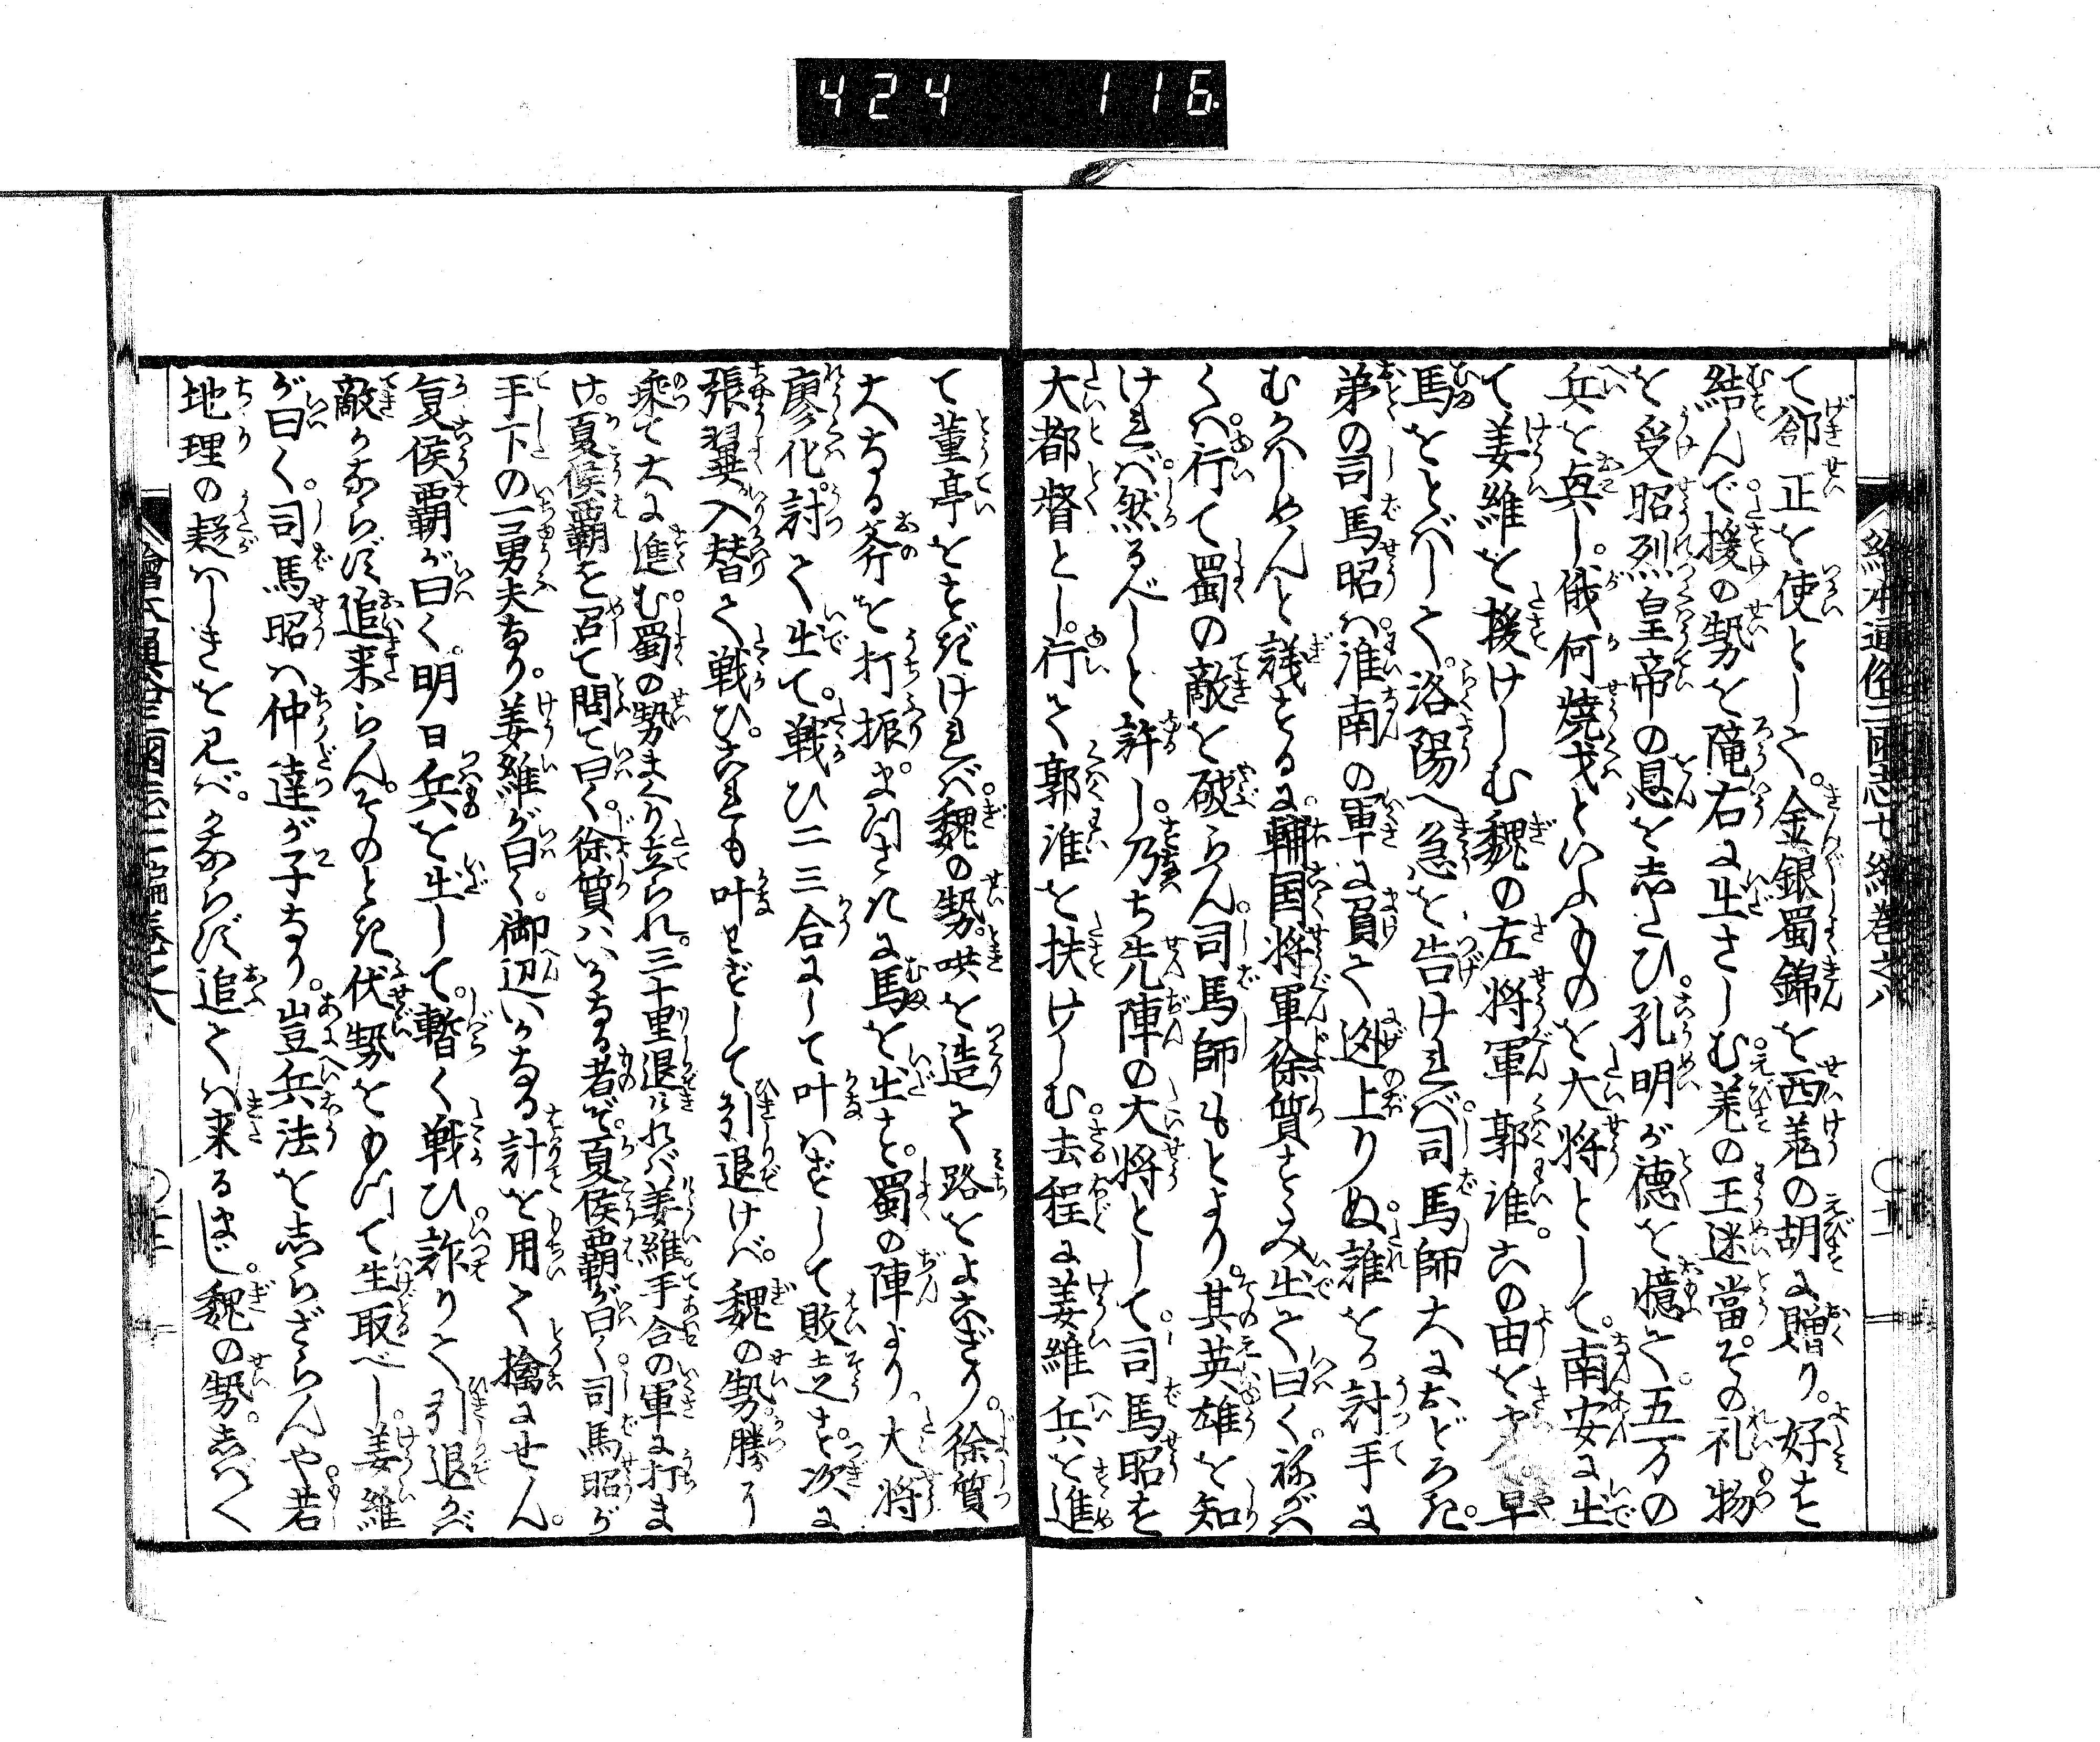 424 116
て郤正を使として。金銀蜀錦を西羌の胡に贈り。好を
結んで援の勢を隴右に出さしむ。羌の王迷當。その礼物
を受昭烈皇帝の恩をしたひ。孔明が徳を憶て。五万の
兵を興し。俄何焼戈といふものを大将として。南安に出
て姜維を援けしむ魏の左将軍郭淮。この由をきゝ。早
馬をとばして。洛陽へ急を告けれバ。司馬師大におどろき。
弟の司馬昭ハ。淮南の軍に負て逃上りぬ。誰をか討手に
むかハしめんと議するに。輔国将軍徐質すゝみ出て曰く。祢がハ
くハ。行て蜀の敵を破らん。司馬師もとより。其英雄を知
けれバ。然るべしと許し。乃ち先陣の大将として。司馬昭を
大都督とし。行て郭淮を扶けしむ。去程に姜維兵を進
て董亭をすぎけれバ。魏の勢。哄を造て路をよこぎり。徐質
大なる斧を打振。まつさきに馬を出す。蜀の陣より。大将
廖化。討て出て。戦ひ二三合にして叶ハずして敗走す。次に
張翼。入替て戦ひ。これも叶ハずして引退けバ。魏の勢。勝に
乗て大に進む。蜀の勢まくり立られ。三十里退けれバ。姜維。手合の軍に打ま
け。夏侯覇を召て問て曰く。徐質ハいかなる者ぞ。夏侯覇が曰く。司馬昭が
手下の一勇夫なり。姜維が曰く。御辺いかなる計を用て擒にせん。
夏侯覇が曰く。明日兵を出して。暫く戦ひ。詐りて引退かバ
敵かならず追来らん。そのとき伏勢をもつて生取べし。姜維
が曰く。司馬昭ハ仲達が子なり。豈兵法をしらざらんや。若
地理の疑ハしきを見バ。かならず追てハ来るまじ。魏の勢。しバく